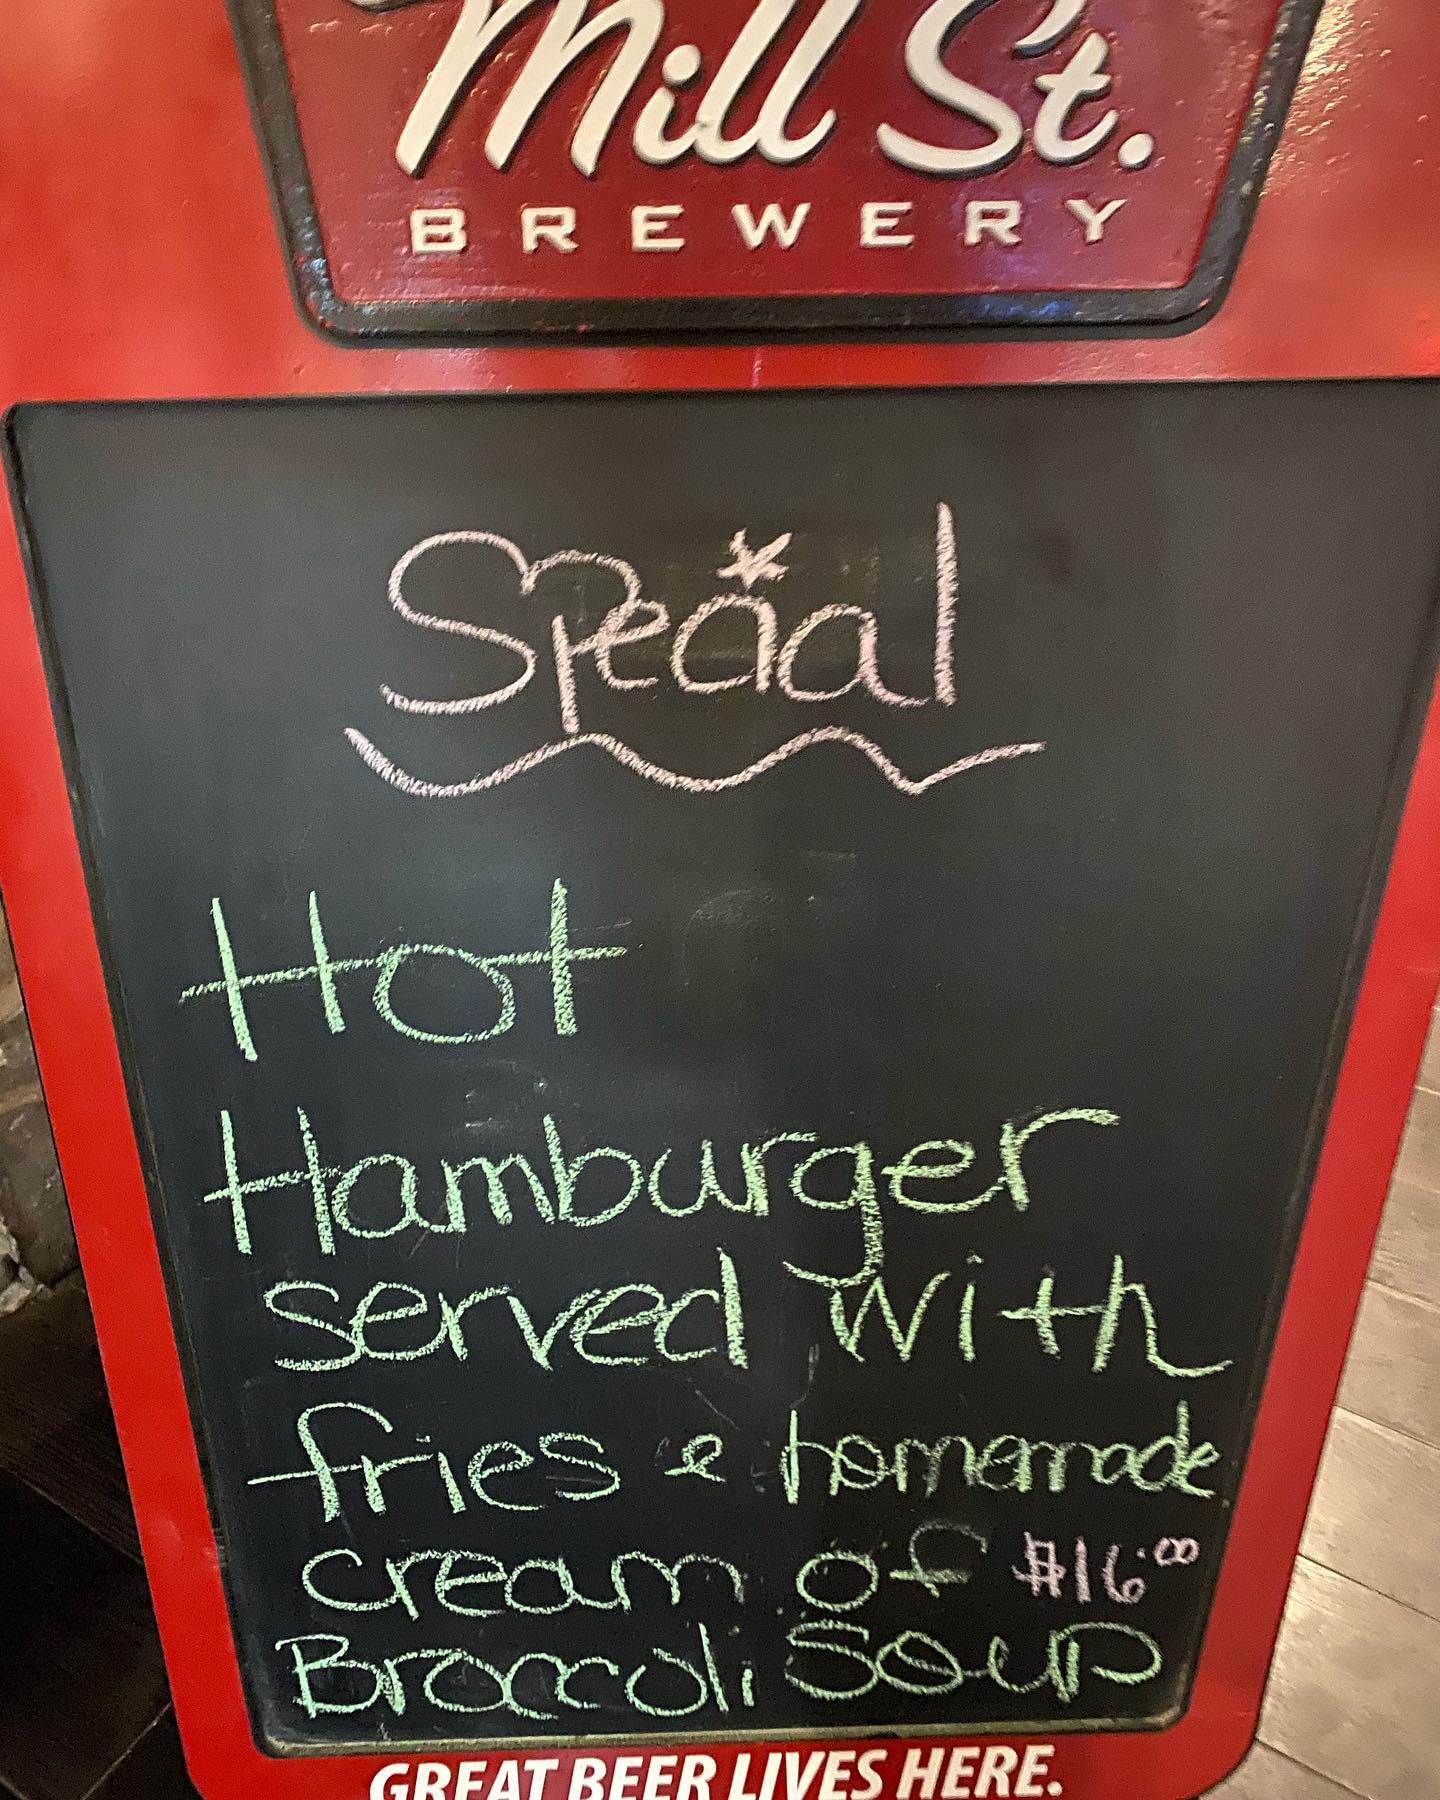 Mill St.
BREWERY
Special
Hot
Hamburger
served with
fries & homemade
cream of $16.00
Broccoli Soup
GREAT BEER LIVES HERE.